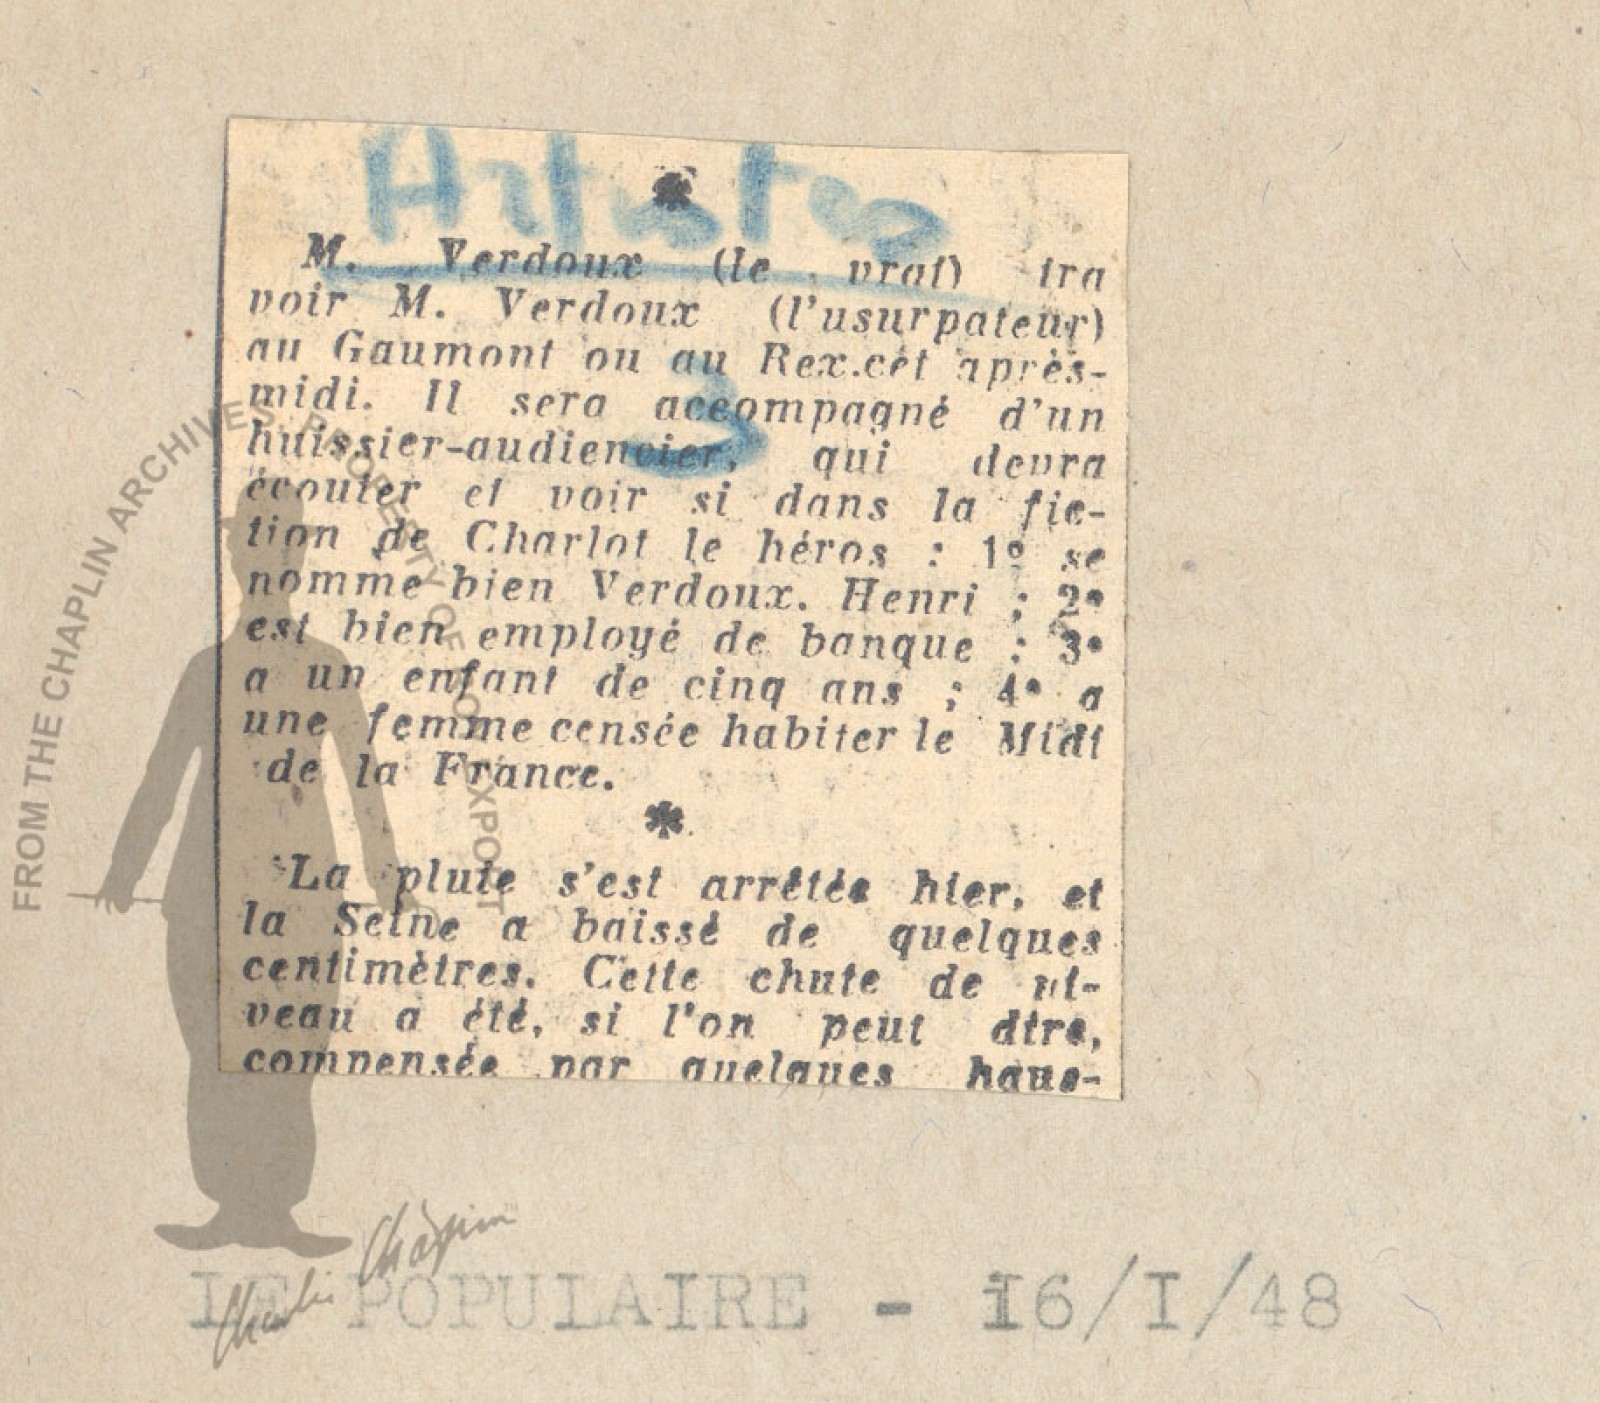 Artistes
M. Verdoux (le vrai) ira
voir M. Verdoux (l'usurpateur)
au Gaumont ou au Rex.cet après-
midi. Il sera accompagné d'un
huissier-audiencier, qui devra
écouter et voir si dans la fic-
tion de Charlot le héros : 1º se
nomme bien Verdoux. Henri ; 2º
est bien employé de banque ; 3º
a un enfant de cinq ans ; 4º a
une femme censée habiter le Midi
de la France.
La pluie s'est arrêtée hier, et
la Seine a baissé de quelques
centimètres. Cette chute de ni-
veau a été, si l'on peut dire,
compensée par quelques haus-
3
FROM THE CHAPLIN ARCHIVES. PROPERTY OF ROY EXPORT
Charlie Chaplin
LE POPULAIRE - 16/I/48